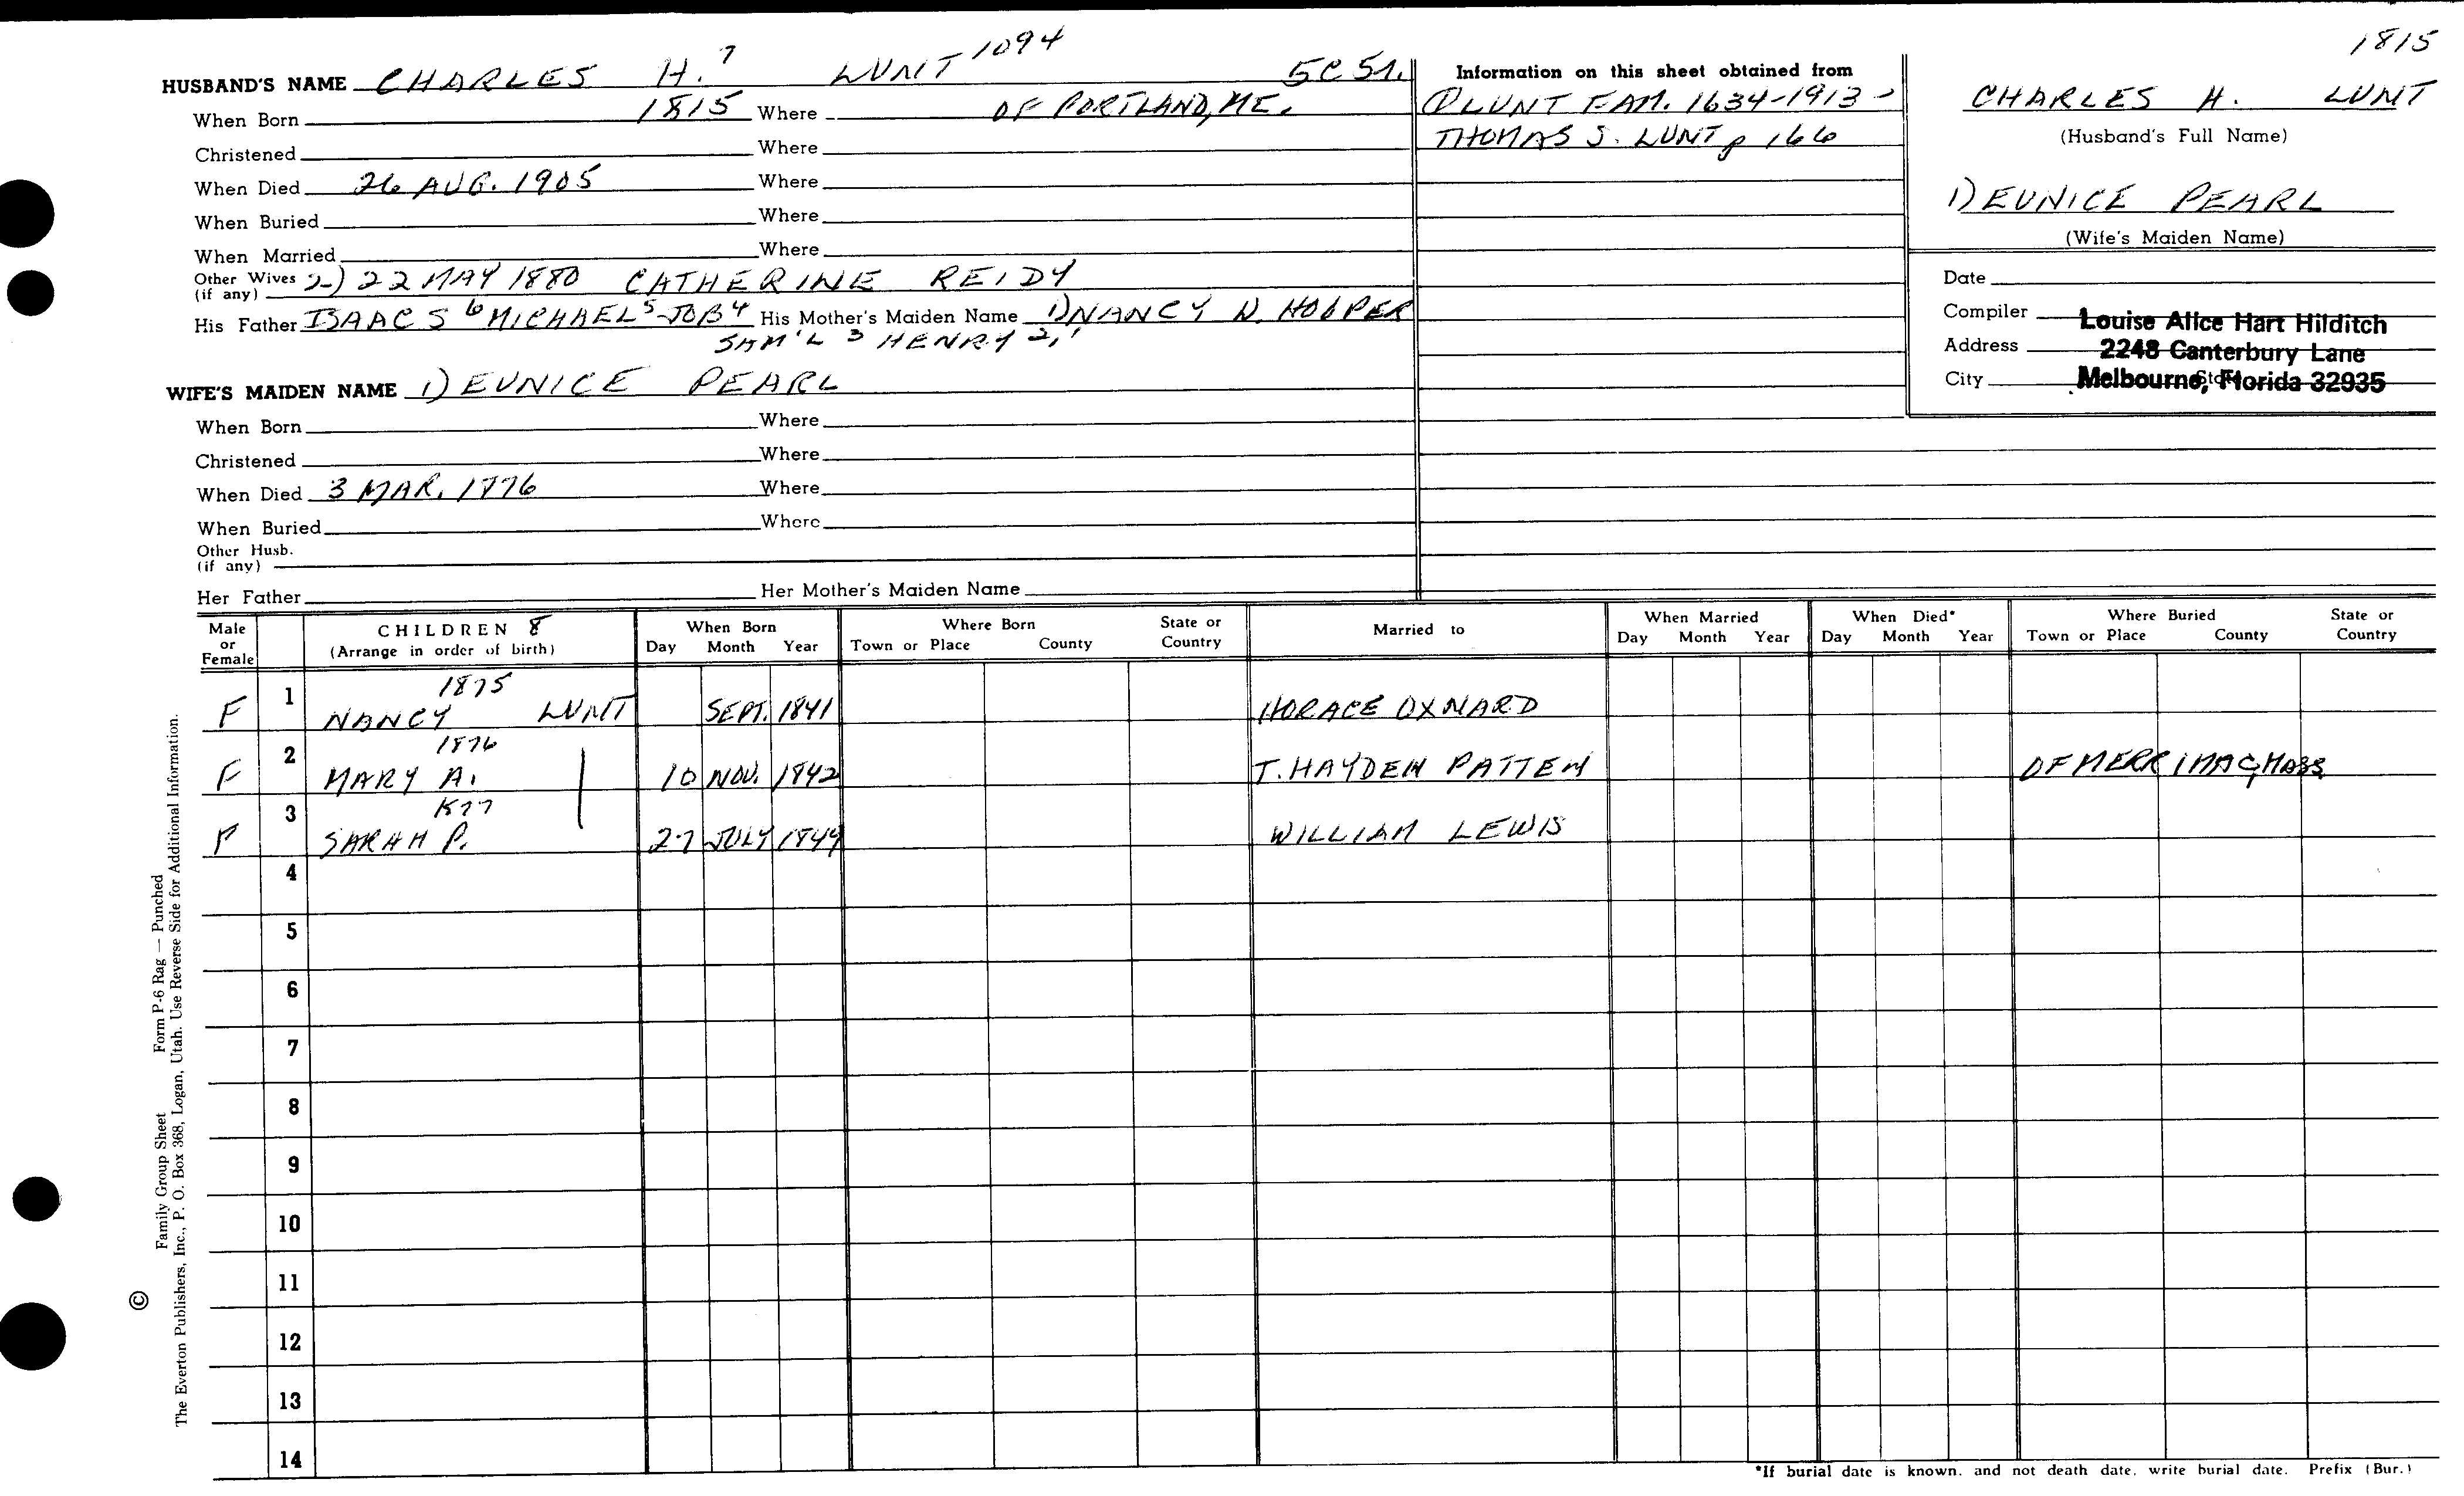 1815
HUSBAND'S NAME CHARLES H.7 LUNT 1094 5C 51.
When Born 1815 Where OF PORTLAND, ME.
Christened Where
When Died 26 AUG. 1905 Where
When Buried Where
When Married Where
Other Wives (if any) 2) 22 MAY 1880 CATHERINE REIDY
His Father ISAAC S 6 MICHAEL 5 JOB 4 His Mother's Maiden Name 1) NANCY W. HOOPER
SAM'L 3 HENRY 2, 1
WIFE'S MAIDEN NAME 1) EUNICE PEARL
When Born Where
Christened Where
When Died 3 MAR. 1876 Where
When Buried Where
Other Husb.
(if any)
Her Father Her Mother's Maiden Name
Information on this sheet obtained from
① LUNT FAM. 1634-1913 -
THOMAS S. LUNT p 166
CHARLES H. LUNT
(Husband's Full Name)
1) EUNICE PEARL
(Wife's Maiden Name)
Date
Compiler Louise Alice Hart Hilditch
Address 2248 Canterbury Lane
City Melbourne, Florida 32935
State
Male or Female CHILDREN 8 (Arrange in order of birth) When Born Day Month Year Where Born Town or Place County State or Country Married to When Married Day Month Year When Died* Day Month Year Where Buried Town or Place County State or Country
1875
F 1 NANCY LUNT SEPT. 1841 HORACE OXNARD
1876
F 2 MARY A. 10 NOV. 1842 T. HAYDEN PATTEN OF MERRIMAC, MASS
1877
F 3 SARAH P. 27 JULY 1844 WILLIAM LEWIS
4
5
6
7
8
9
10
11
12
13
14
*If burial date is known, and not death date, write burial date. Prefix (Bur.)
© Family Group Sheet Form P-6 Rag — Punched
The Everton Publishers, Inc., P. O. Box 368, Logan, Utah. Use Reverse Side for Additional Information.